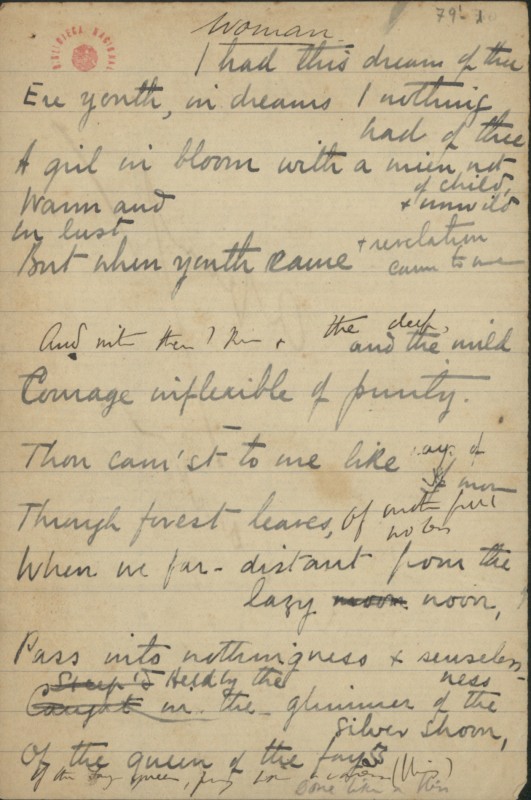 79-1
BIBLIOTECA NACIONAL
Woman
I had this dream of thee
Ere youth, in dreams I nothing
had of thee
A girl in bloom with a mien not
of child,
Warm and & unwild
in lust
But when youth came & revelation
came to me
And with thee & the deep,
and the mild
Courage inflexible of purity.
Thou cam'st to me like rays of
moon
Through forest leaves, of
notes
When we far-distant from the
lazy moon noon,
Pass into nothingness & senseless-
ness
Steep'd Held by the
Caught in the glimmer of the
silver shoon,
Of the queen of the fays
Of the fay queen,
Come like a